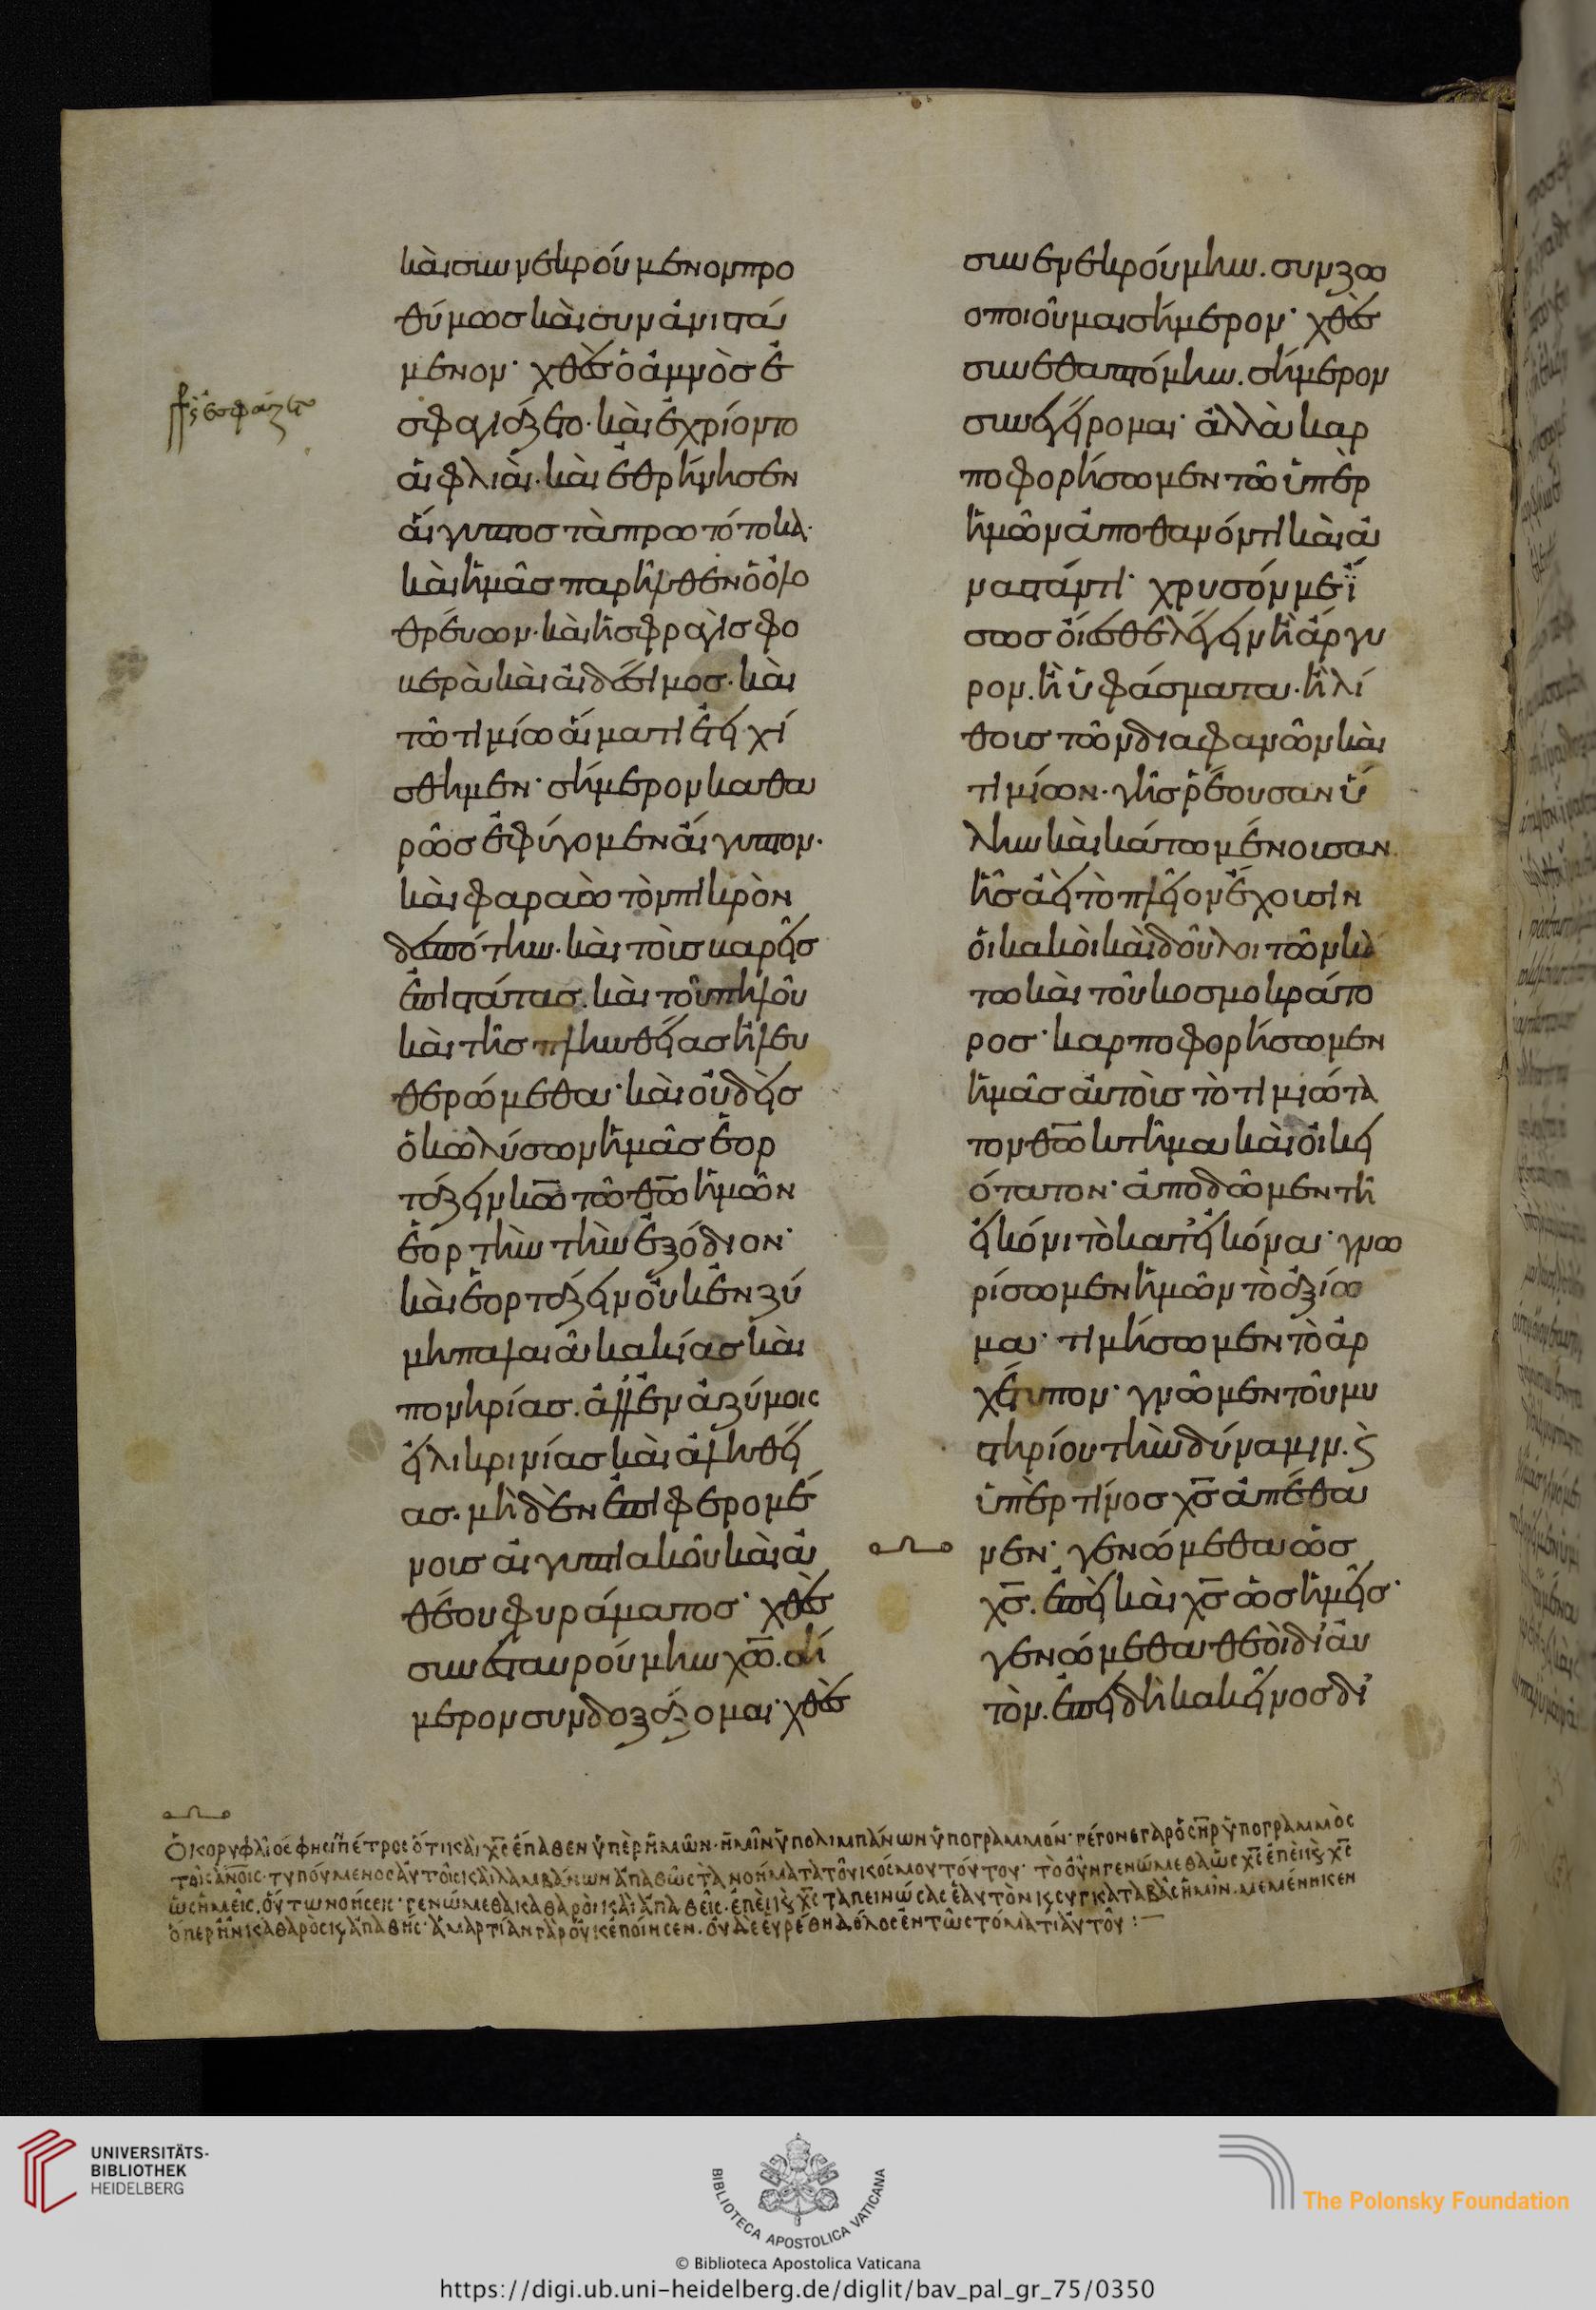 καὶ συννεκρούμενον προ
θύμωσ καὶ συνανιστά
μενον· χθὲσ ὁ ἀμνὸσ ἐ
σφαγιάζετο· καὶ ἐχρίοντο
αἱ φλιαὶ· καὶ ἐθρήνησεν
αἴγυπτοσ τὰ πρωτότοκα·
καὶ ἡμᾶσ παρῆλθεν ὁ ὀλο
θρεύων· καὶ ἡ σφραγὶσ φο
βερὰ καὶ αἰδέσιμοσ· καὶ
τῶ τιμίω αἵματι ἐτειχί
σθημεν· σήμερον καθα
ρῶσ ἐφύγομεν αἴγυπτον·
καὶ φαραὼ τὸν πικρὸν
δεσπότην· καὶ τοὺσ βαρεῖσ
ἐπιστάτασ. καὶ τοῦ πηλοῦ
καὶ τῆσ πλινθείασ ἠλευ
θερώμεθα· καὶ οὐδεὶσ
ὁ κωλύσων ἡμᾶσ ἑορ
τάζειν κω̅ τῶ θω̅ ἡμῶν
ἑορτὴν τὴν ἐξόδιον·
καὶ ἑορτάζειν οὐκ ἐν ζύ
μη παλαιᾶ κακίασ καὶ
πονηρίασ. ἀλλ' ἐν ἀζύμοις
εἰλικρινίασ καὶ ἀληθεί
ασ. μηδὲν ἐπιφερομέ
νουσ αἰγυπτιακοῦ καὶ ἀ
θέου φυράματοσ· χθὲσ
συνεσταυρούμην χω̅. σή
μερον συνδοξάζομαι· χθὲσ
συνενεκρούμην. συνζωο
οποιοῦμαι σήμερον· χθὲσ
συνεθαπτόμην. σήμερον
συνεγείρομαι· ἀλλὰ καρ
ποφορήσωμεν τῶ ὑπὲρ
ἡμῶν ἀποθανόντι καὶ ἀ
ναστάντι· χρυσόν με ἴ
σωσ οἴεσθε λέγειν ἢ ἄργυ
ρον. ἢ ὑφάσματα· ἢ λί
θουσ τῶν διαφανῶν καὶ
τιμίων· γῆσ ῥέουσαν ὕ
λην καὶ κάτω μένουσαν
ἧσ ἀεὶ τὸ πλεῖον ἔχουσιν
οἱ κακοὶ καὶ δοῦλοι τῶν κά
τω καὶ τοῦ κοσμοκράτο
ροσ· καρποφορήσωμεν
ἡμᾶσ αὐτοὺσ τὸ τιμιώτα
τον θω̅ κτῆμα καὶ οἰκει
ότατον· ἀποδῶμεν τῆ
εἰκόνι τὸ κατ' εἰκόνα· γνω
ρίσωμεν ἡμῶν τὸ ἀξίω
μα· τιμήσωμεν τὸ ἀρ
χέτυπον· γνῶμεν τοῦ μυ
στηρίου τὴν δύναμιν. ϗ
ὑπὲρ τίνοσ χσ̅ ἀπέθα
νεν· γενώμεθα ὡσ
χσ̅. ἐπεὶ καὶ χσ̅ ὡσ ἡμεῖσ·
γενώμεθα θεοὶ δι' αὐ
τὸν. ἐπειδὴ κακεῖνοσ δι'
Ὁ κορυφαῖος φησὶ πέτρος ὅτι καὶ χς̅ ἔπαθεν ὑπὲρ ἡμῶν· ἡμῖν ὑπολιμπάνων ὑπογραμμόν· γέγονε γὰρ ὁ σηρ̅ ὑπογραμμὸς
τοῖς ἀνοις̅· τυπούμενος αὐτοῖς καὶ λαμβάνων ἀπαθῶς τὰ νοήματα τοῦ κόσμου τούτου· τὸ οὖν γενώμεθα ὡς χς̅ ἐπεὶ ϗ χς̅
ὡς ἡμεῖς. οὕτω νοήσεις· γενώμεθα καθαροὶ καὶ ἀπαθεῖς· ἐπεὶ ϗ χς̅ ταπεινώσας ἑαυτὸν ϗ συγκαταβὰς ἡμῖν. μεμένηκεν
ὅπερ ἦν καθαρὸς ϗ ἀπαθής· ἁμαρτίαν γὰρ οὐκ ἐποίησεν. οὐδὲ εὑρέθη δόλος ἐν τῶ στόματι αὐτοῦ :—
UNIVERSITÄTS-
BIBLIOTHEK
HEIDELBERG
BIBLIOTECA APOSTOLICA VATICANA
© Biblioteca Apostolica Vaticana
The Polonsky Foundation
https://digi.ub.uni-heidelberg.de/diglit/bav_pal_gr_75/0350